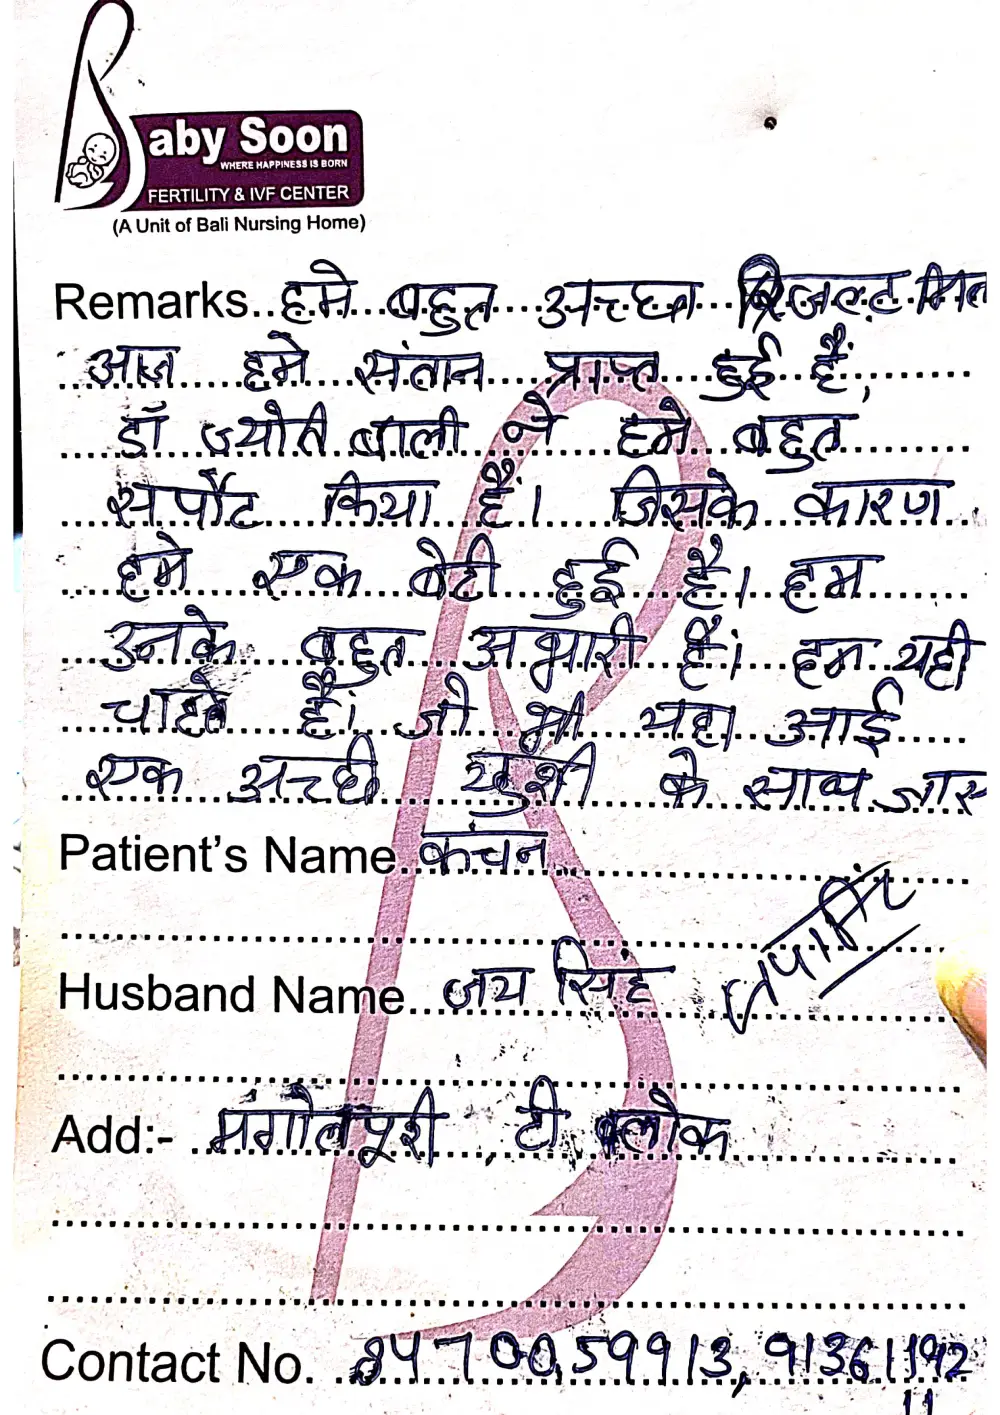 Baby Soon
WHERE HAPPINESS IS BORN
FERTILITY & IVF CENTER
(A Unit of Bali Nursing Home)
Remarks हमे बहुत अच्छा रिजल्ट मिल
आज हमे संतान प्राप्त हुई है,
डॉ ज्योति बाली ने हमे बहुत
सर्पोट किया है। जिसके कारण
हमे एक बेटी हुई है। हम
उनके बहुत अभारी है। हम यही
चाहते है। जो भी यहा आई
एक अच्छी खुशी के साथ जाए
Patient's Name कंचन
Husband Name जय सिंह
Add:- मंगोलपूरी, टी ब्लोक
Contact No. 8470059913, 91361192
11